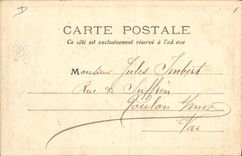 CARTE POSTALE
Ce côté est exclusivement réservé à l'adresse
Monsieur Jules Imbert
Rue de Suffren
Toulon s/mer
Var